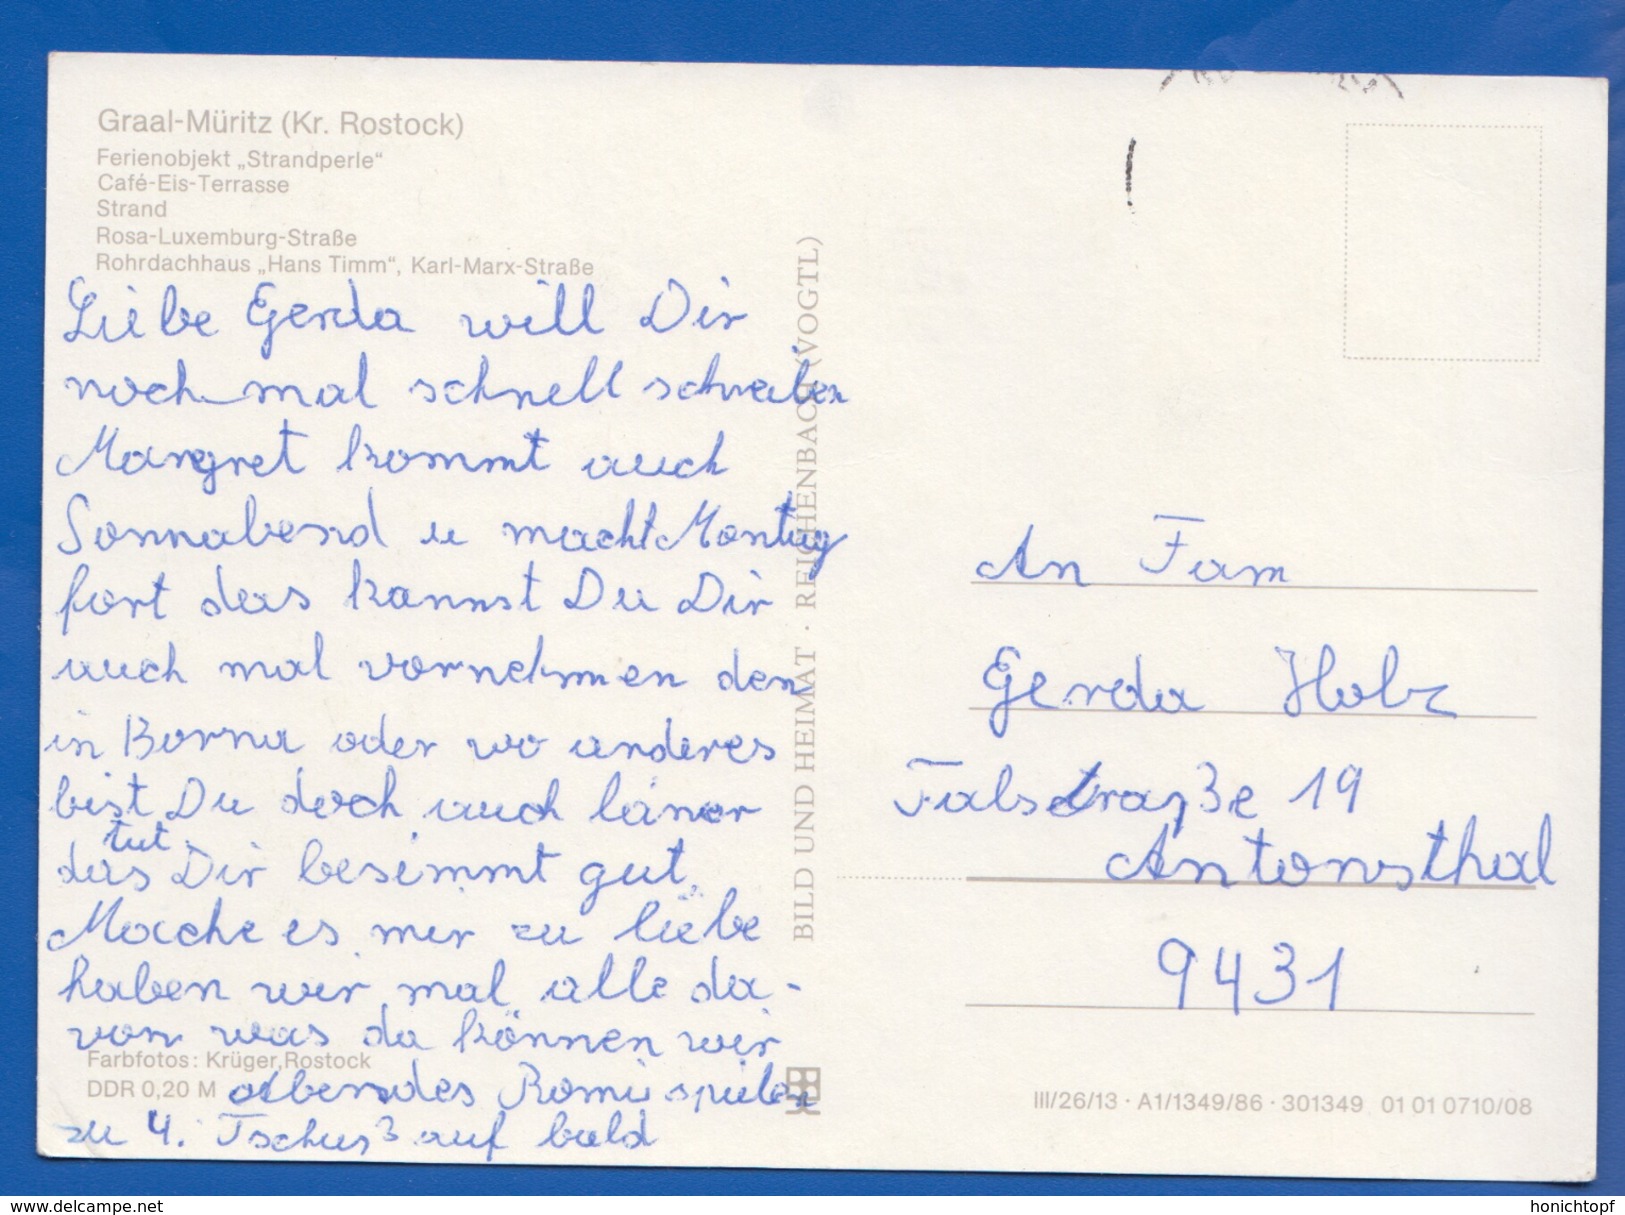 Graal-Müritz (Kr. Rostock)
Ferienobjekt „Strandperle“
Café-Eis-Terrasse
Strand
Rosa-Luxemburg-Straße
Rohrdachhaus „Hans Timm“, Karl-Marx-Straße
Liebe Gerda will Dir
noch mal schnell schreiben
Margret kommt auch
Sonnabend u macht Montag
fort das kannst Du Dir
auch mal vornehmen den
in Borna oder wo anderes
bist Du doch auch
tut
das Dir besimmt gut.
Mache es mir zu liebe
haben wir mal alle da-
von was da können wir
abendes Romi spielen
zu 4. Tschuß auf bald
Farbfotos: Krüger, Rostock
DDR 0,20 M
BILD UND HEIMAT · REICHENBACH (VOGTL)
An Fam
Gerda Holz
Talstraße 19
Antonsthal
9431
III/26/13 · A1/1349/86 · 301349 01 01 0710/08
delcampe.net
honichtopf